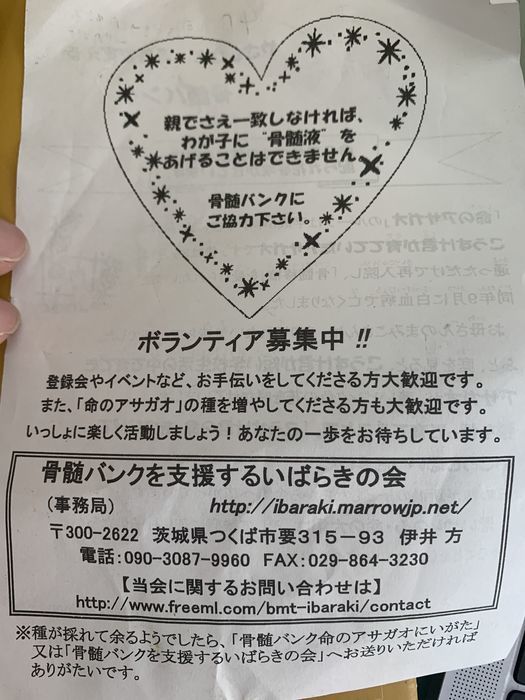 親でさえ一致しなければ、
わが子に "骨髄液" を
あげることはできません。
骨髄バンクに
ご協力下さい。
ボランティア募集中 !!
登録会やイベントなど、お手伝いをしてくださる方大歓迎です。
また、「命のアサガオ」の種を増やしてくださる方も大歓迎です。
いっしょに楽しく活動しましょう！あなたの一歩をお待ちしています。
骨髄バンクを支援するいばらきの会
（事務局） http://ibaraki.marrowjp.net/
〒300-2622 茨城県つくば市要315－93 伊井 方
電話：090-3087-9960 FAX：029-864-3230
【当会に関するお問い合わせは】
http://www.freeml.com/bmt-ibaraki/contact
※種が採れて余るようでしたら、「骨髄バンク命のアサガオにいがた」
又は「骨髄バンクを支援するいばらきの会」へお送りいただければ
ありがたいです。